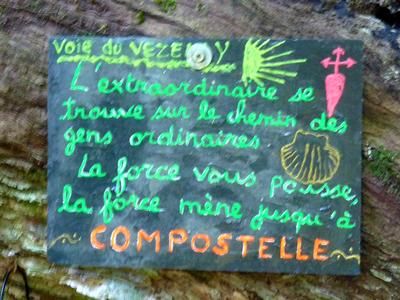 Voie du VEZELAY
L'extraordinaire se
trouve sur le chemin des
gens ordinaires
La force vous pousse,
la force mène jusqu'à
COMPOSTELLE